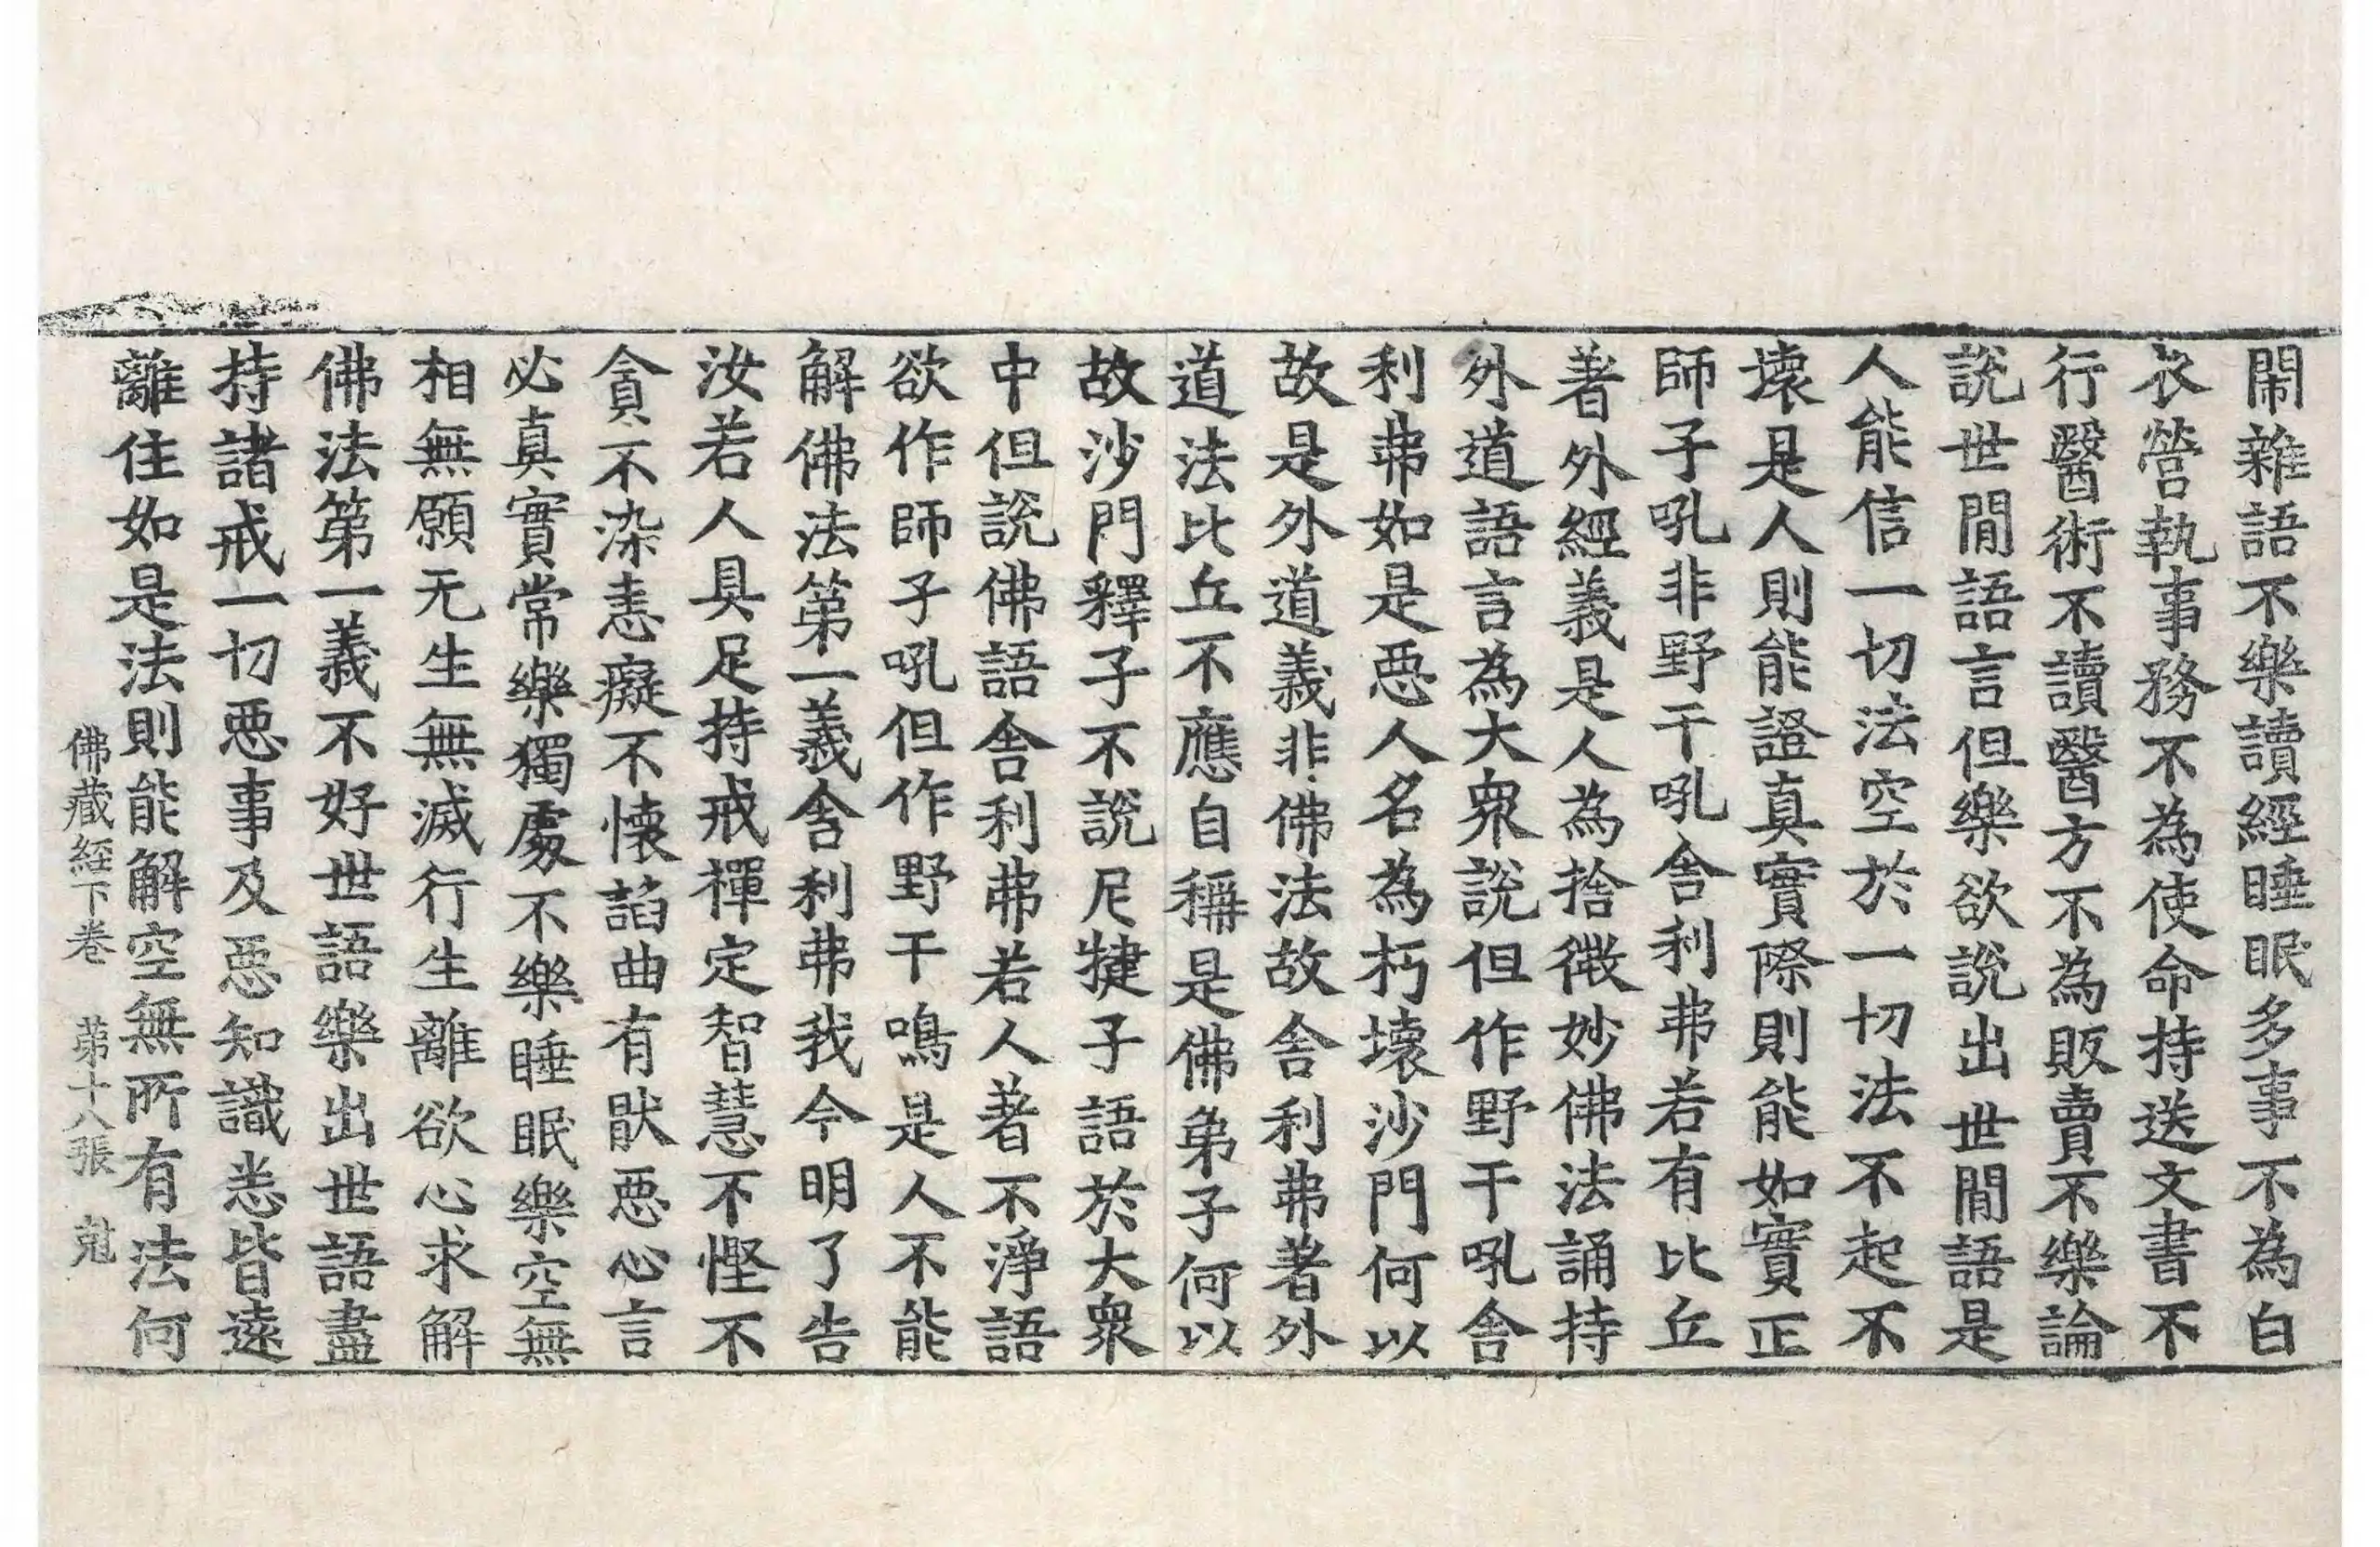 閙雜語不樂讀經睡眠多事不為白
衣營執事務不為使命持送文書不
行醫術不讀醫方不為販賣不樂論
說世閒語言但樂欲說出世閒語是
人能信一切法空於一切法不起不
壞是人則能證真實際則能如實正
師子吼非野干吼舍利弗若有比丘
著外經義是人為捨微妙佛法誦持
外道語言為大衆說但作野干吼舍
利弗如是惡人名為朽壞沙門何以
故是外道義非佛法故舍利弗著外
道法比丘不應自稱是佛弟子何以
故沙門釋子不說尼揵子語於大衆
中但說佛語舍利弗若人著不淨語
欲作師子吼但作野干鳴是人不能
解佛法第一義舍利弗我今明了告
汝若人具足持戒禪定智慧不慳不
貪不染恚癡不懷諂曲有猒惡心言
必真實常樂獨處不樂睡眠樂空無
相無願无生無滅行生離欲心求解
佛法第一義不好世語樂出世語盡
持諸戒一切惡事及惡知識悉皆遠
離住如是法則能解空無所有法何
佛藏經下卷　第十八張　尅